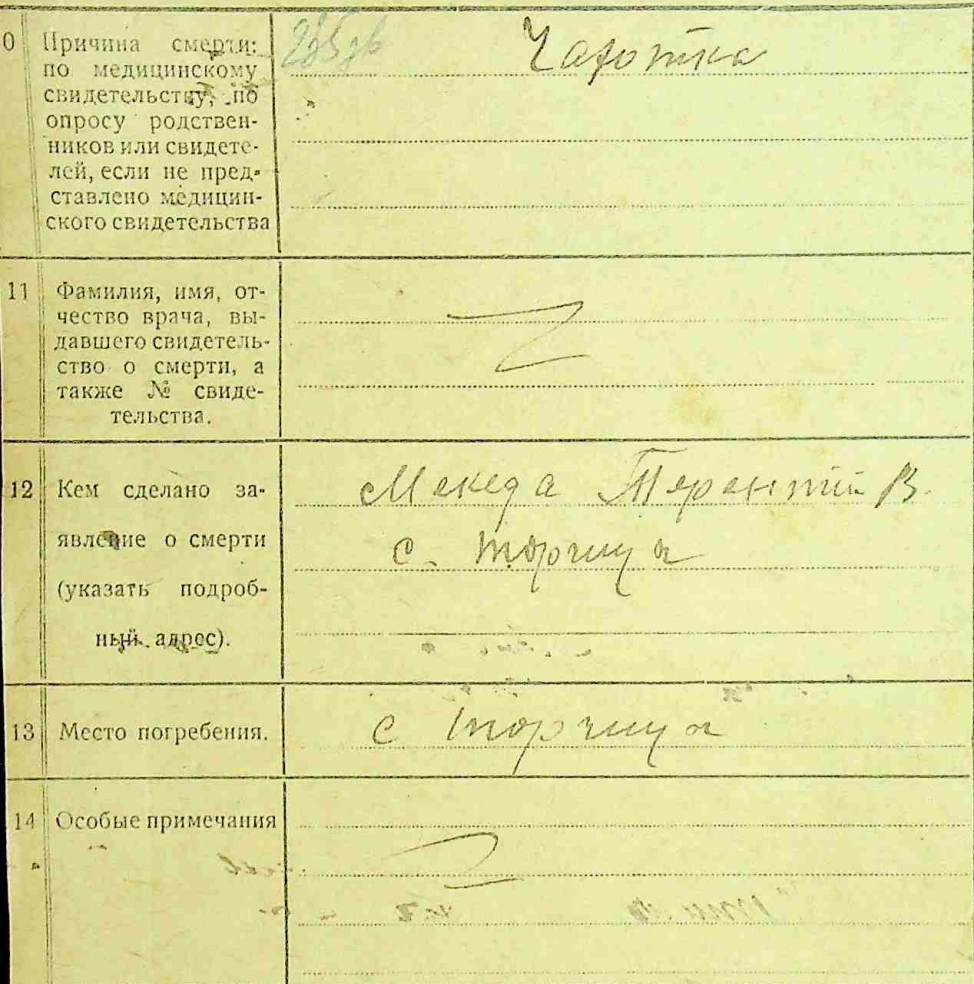 0 Причина смерти: Чахотка
по медицинскому
свидетельству, по
опросу родствен-
ников или свидете-
лей, если не пред-
ставлено медицин-
ского свидетельства
11 Фамилия, имя, от-
чество врача, вы-
давшего свидетель-
ство о смерти, а
также № свиде-
тельства.
12 Кем сделано за- Мекеда Терентий В.
явление о смерти с. Торчица
(указать подроб-
ный адрес).
13 Место погребения. с Торчица
14 Особые примечания